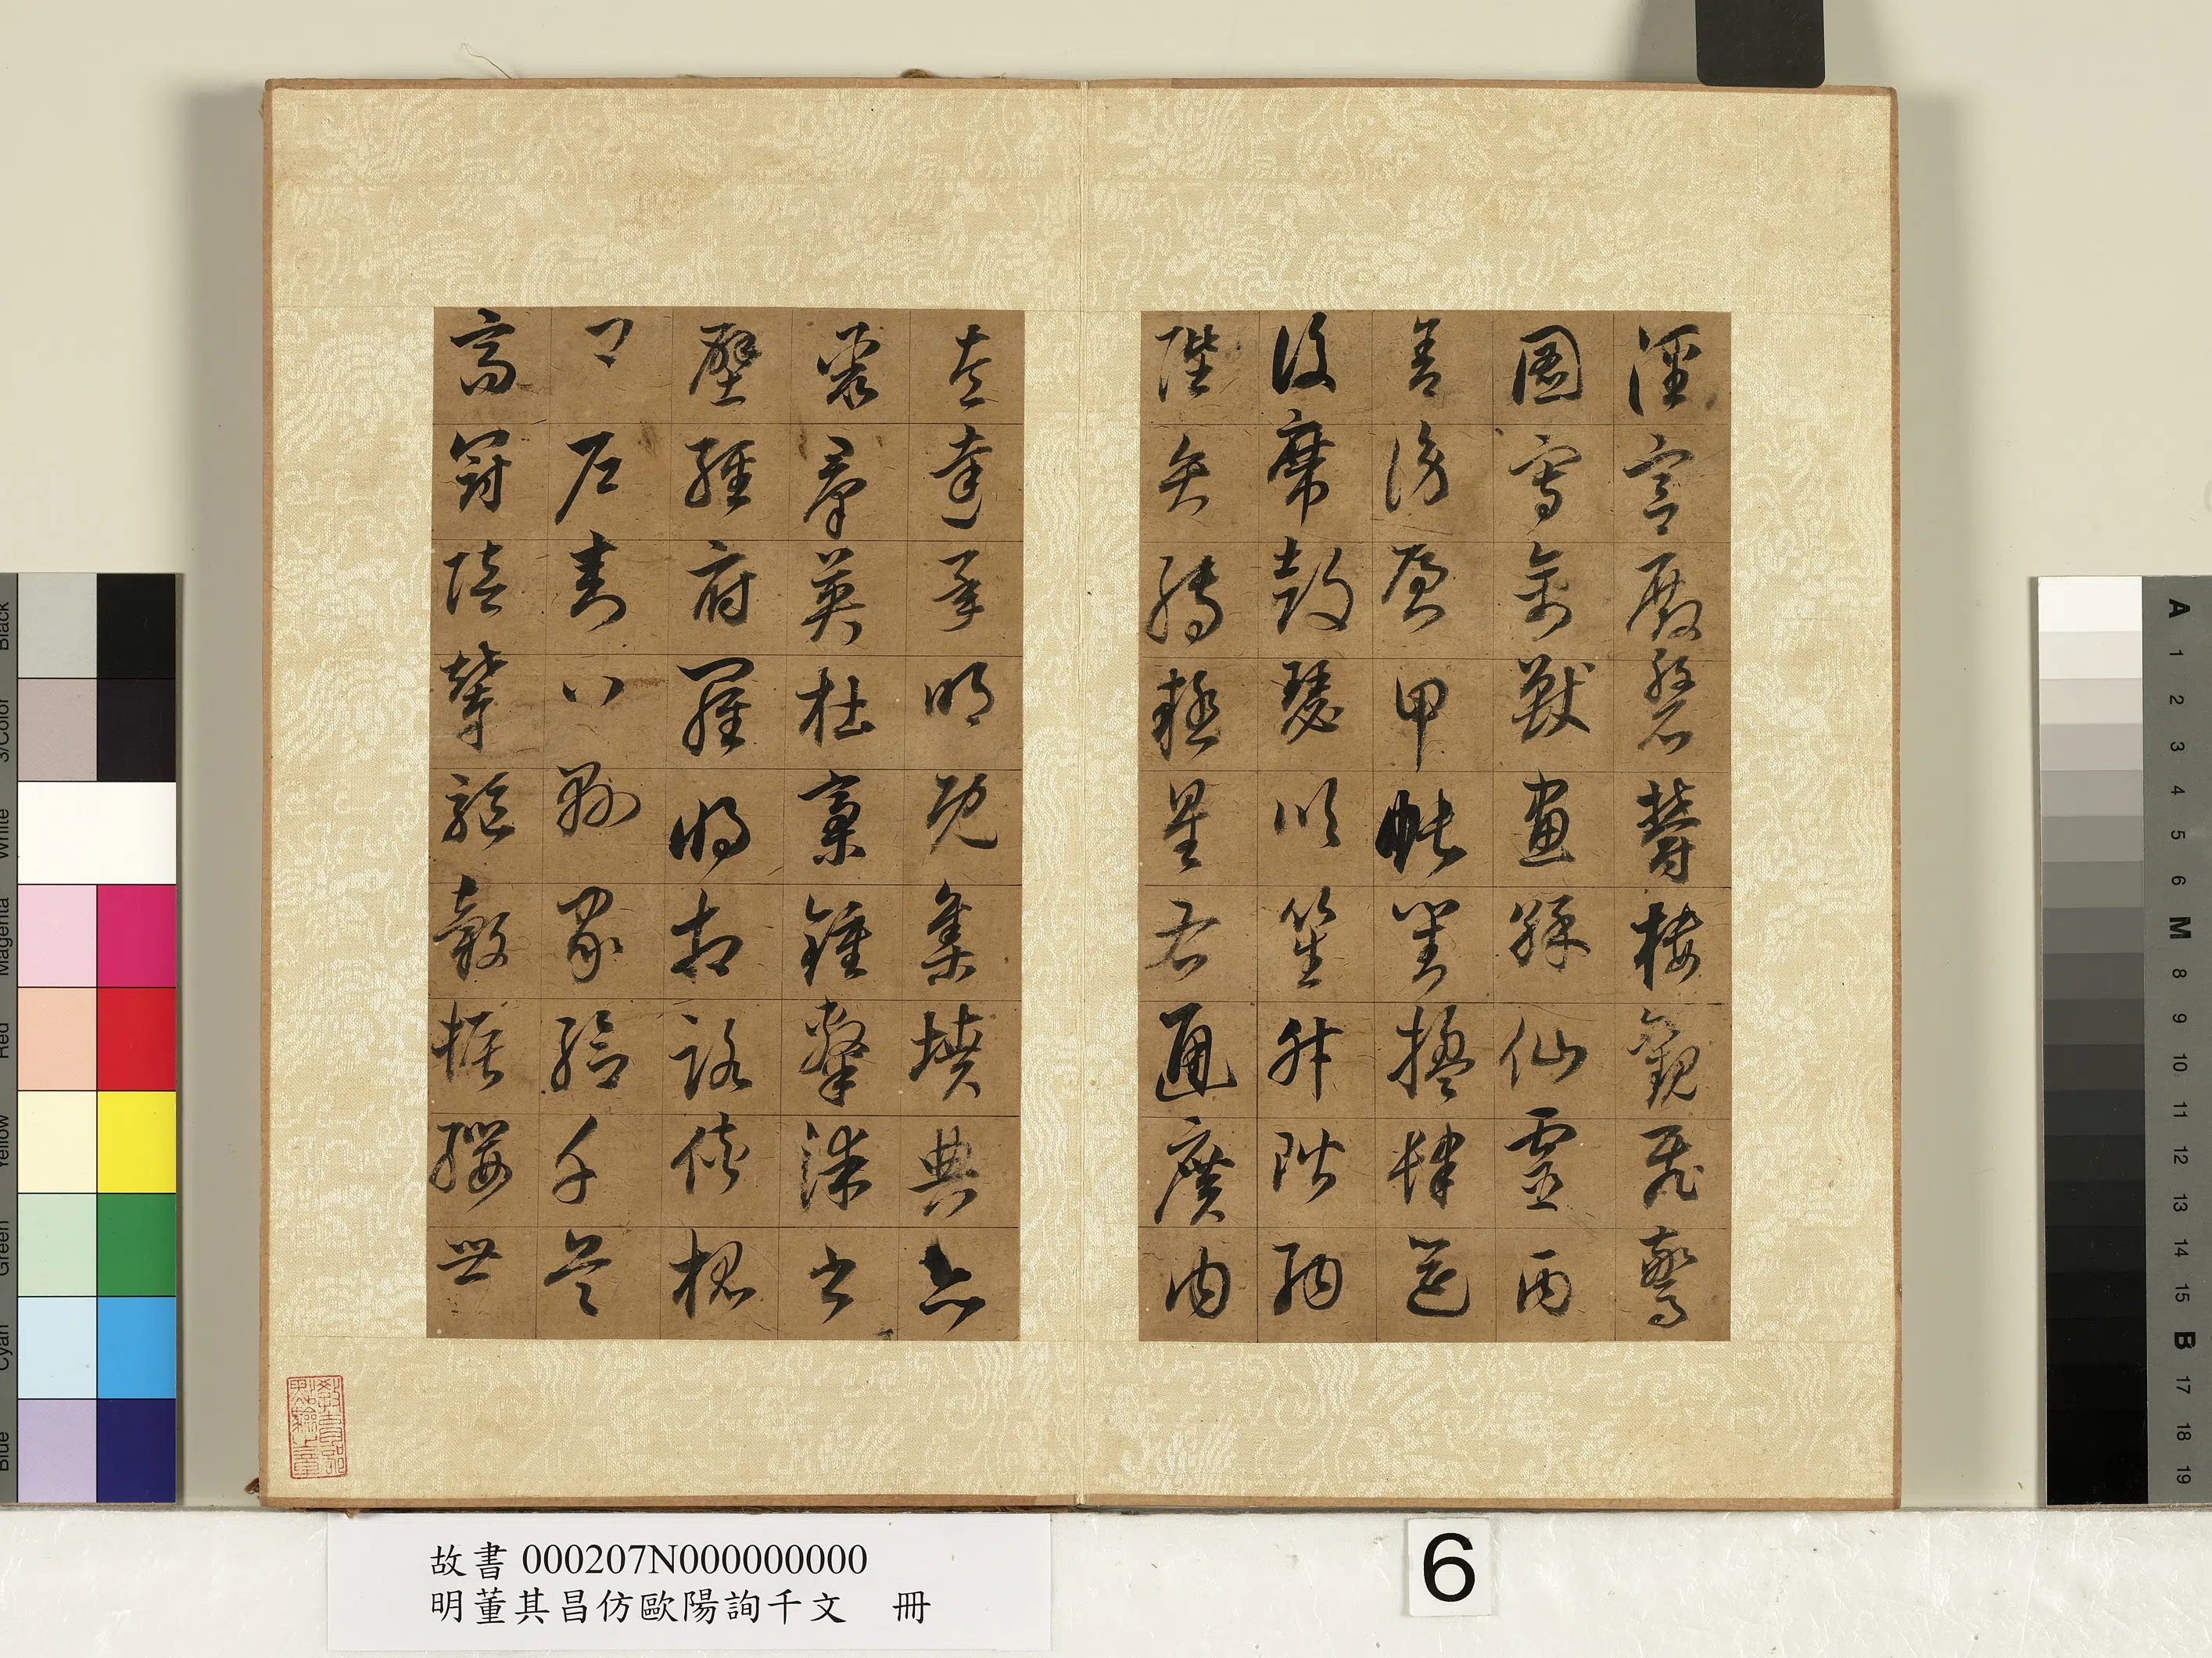 涇宮殿盤鬱樓觀飛驚
圖寫禽獸畫綵仙靈丙
舍傍啟甲帳對楹肆筵
設席鼓瑟吹笙升階納
陛弁轉疑星右通廣內
左達承明既集墳典亦
聚羣英杜稾鍾隸漆書
壁經府羅將相路俠槐
卿戶封八縣家給千兵
高冠陪輦驅轂振纓世
教育部
點驗之章
故書 000207N000000000
明董其昌仿歐陽詢千文 冊
6
Black
3/Color
White
Magenta
Red
Yellow
Green
Cyan
Blue
A 1 2 3 4 5 6 M 8 9 10 11 12 13 14 15 B 17 18 19